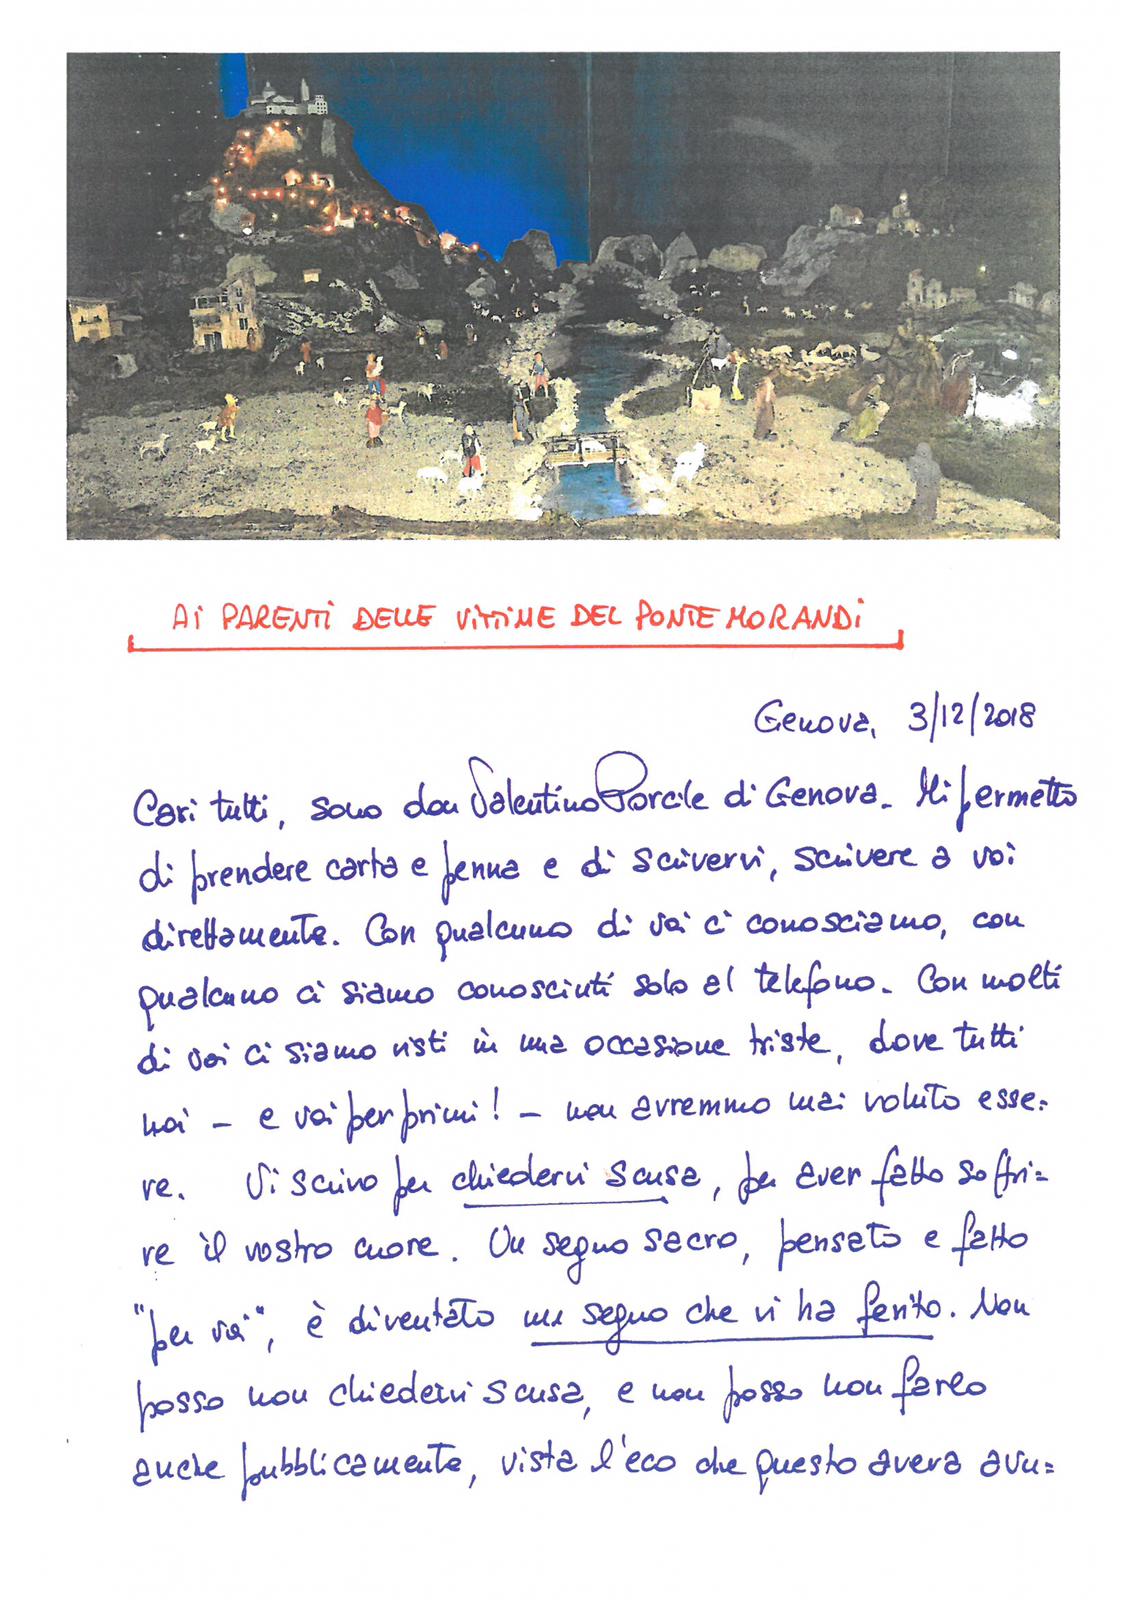 Ai PARENTi DELLE ViTTiME DEL PONTE MORANDi
Genova, 3/12/2018
Cari tutti, sono don Valentino Porcile di Genova. Mi permetto
di prendere carta e penna e di scrivervi, scrivere a voi
direttamente. Con qualcuno di voi ci conosciamo, con
qualcuno ci siamo conosciuti solo al telefono. Con molti
di voi ci siamo visti in una occasione triste, dove tutti
noi - e voi per primi! - non avremmo mai voluto esse=
re. Vi scrivo per chiedervi scusa, per aver fatto soffri=
re il vostro cuore. Un segno sacro, pensato e fatto
"per voi", è diventato un segno che vi ha ferito. Non
posso non chiedervi scusa, e non posso non farlo
anche pubblicamente, vista l'eco che questo aveva avu=